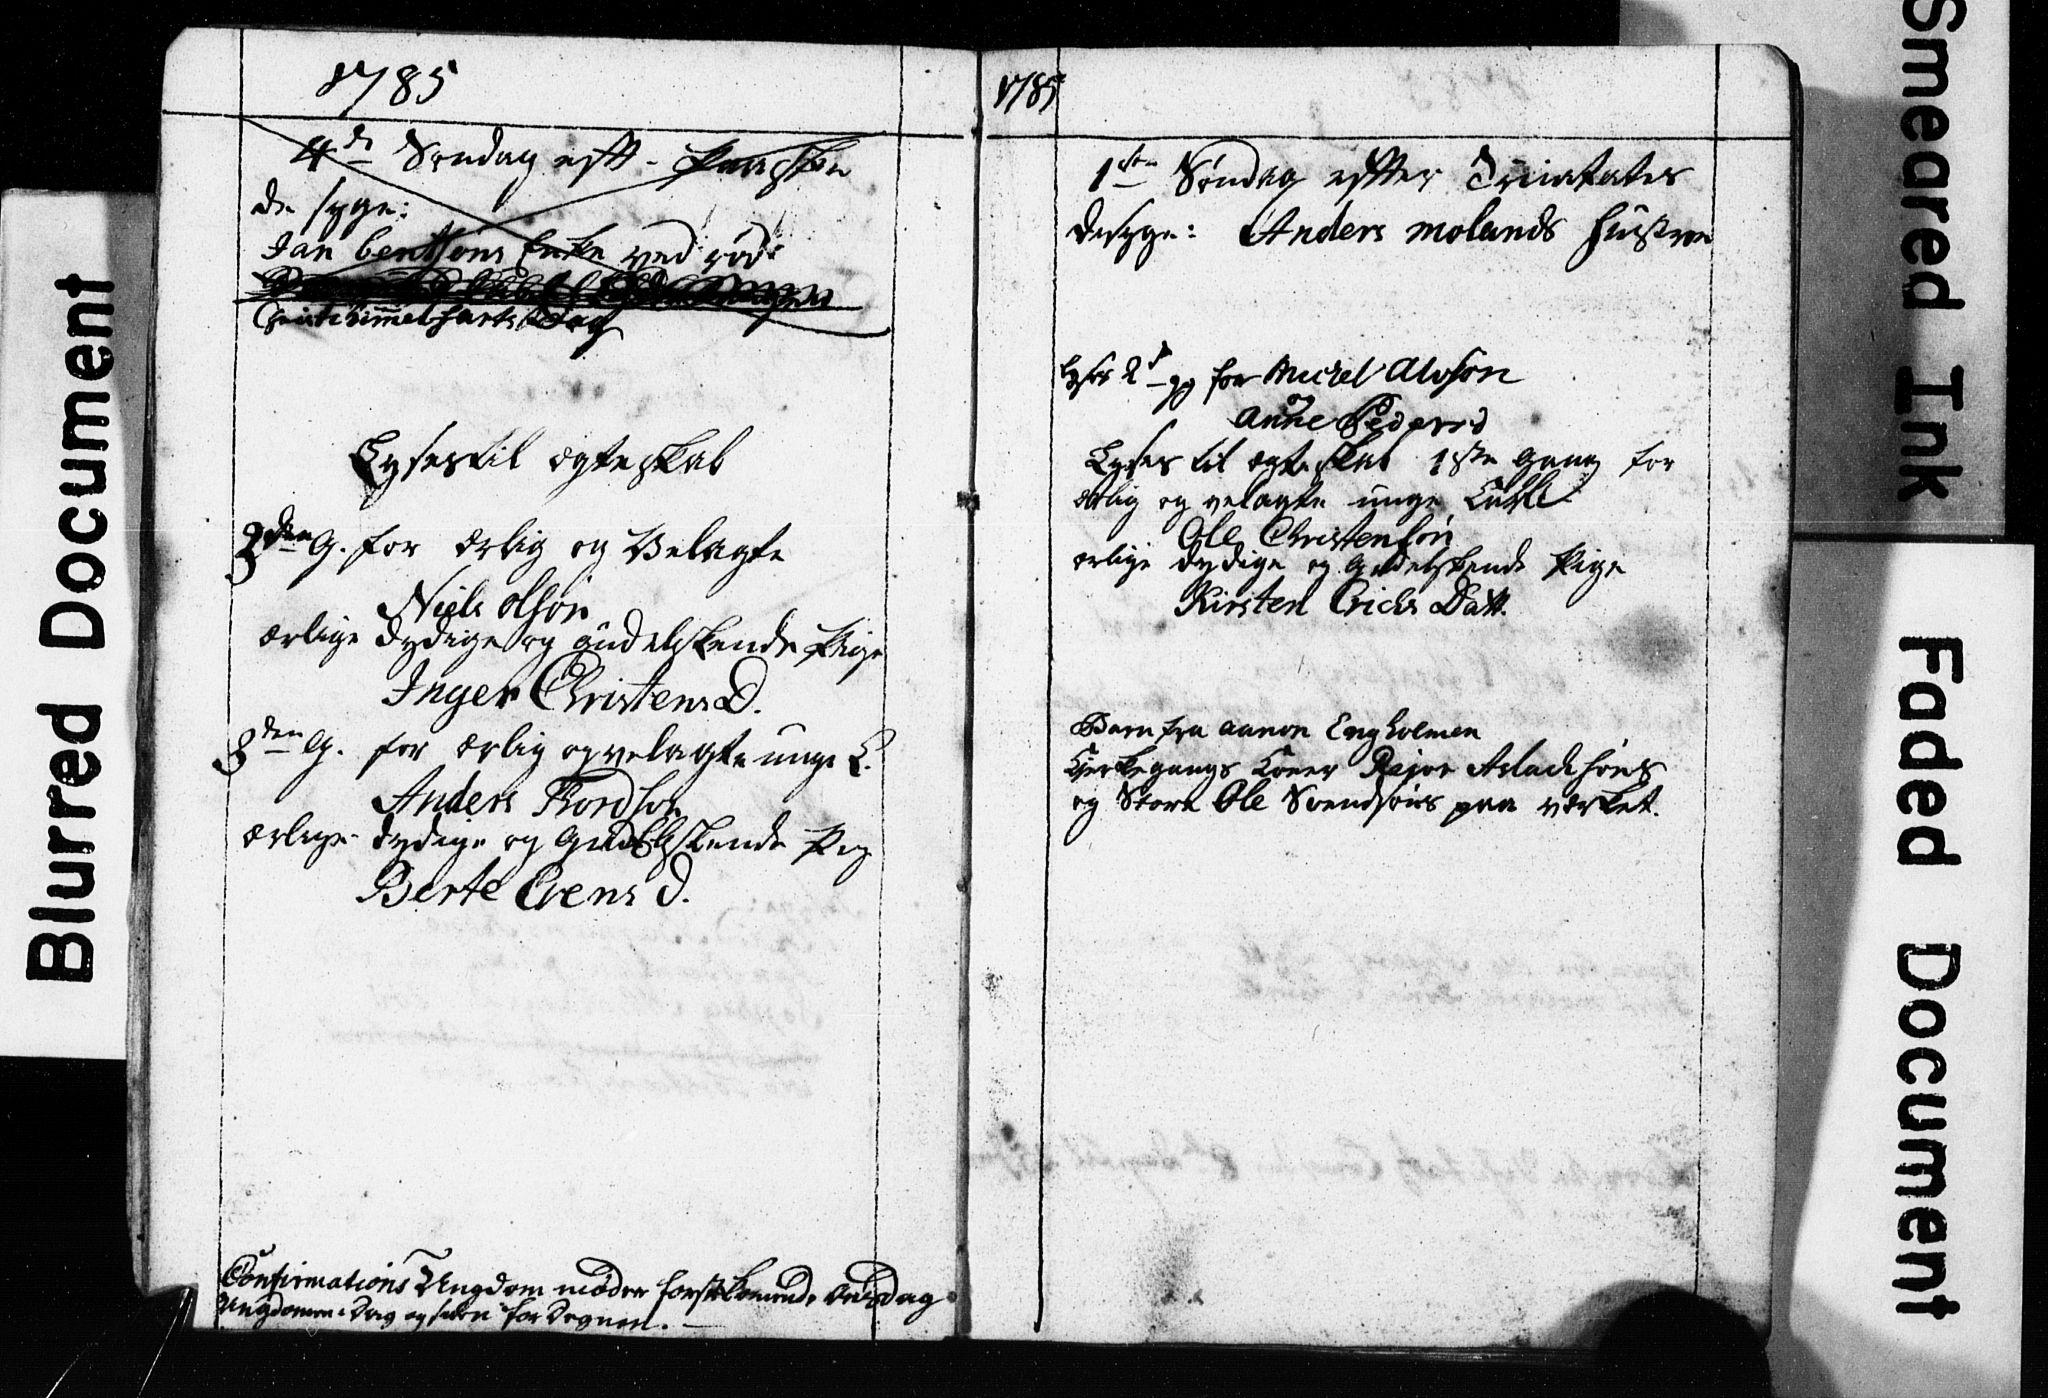 1785
4de Søndag eftt - Paasken
de syge:
Jan bentsøns Enke ved rød:
Christi himmelfarts Dag
Lyses til ægteskab
3den G. for ærlig og Velagte
Niels olsøn
ærlige dydige og gudelskende Pige
Inger Christens D.
3den G. for ærlig og velagte unge K.
Anders Thordsøn
ærlige dydige og Gudelskende Pig
Berte Evens D.
Confirmations Ungdom møder førstkomende Onsdag
Ungdommen i Dag og siden for Degnen. -
1785
1ste Søndag efter Trinitates
desyge: Anders molands Hustroe
Lyses 2d gg for Michel Alvsøn
Anne Peders D
Lyses til ægteskab 1ste Gang for
ærlig og velagte unge Karl
Ole Christensøn
ærlige dydige og Gudelskende Pige
Kirsten Erichs Datt.
Barn fra aanon Engholmen
Kierkegangs Koner Rejor Aslachsøns
og Store Ole Svendsøns paa værket.
Blurred Document
Smeared Ink
Faded Document